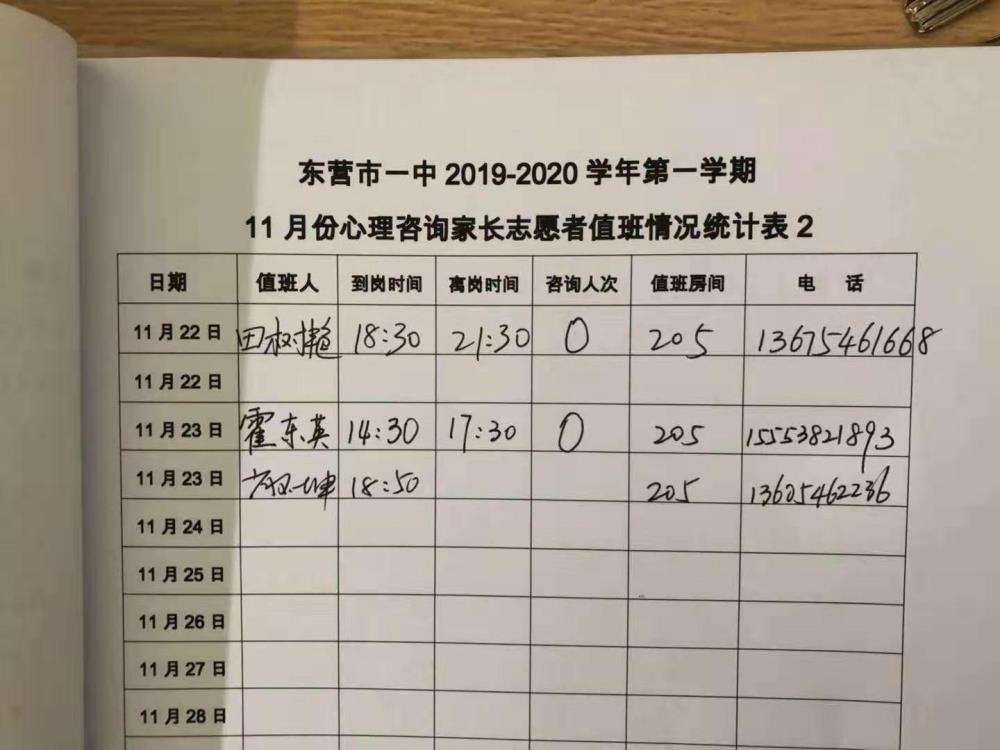 东营市一中 2019-2020 学年第一学期
11 月份心理咨询家长志愿者值班情况统计表 2
日期 值班人 到岗时间 离岗时间 咨询人次 值班房间 电 话
11 月 22 日 田树艳 18:30 21:30 0 205 13675461668
11 月 22 日
11 月 23 日 霍东英 14:30 17:30 0 205 15553821893
11 月 23 日 18:50 205 13605462236
11 月 24 日
11 月 25 日
11 月 26 日
11 月 27 日
11 月 28 日